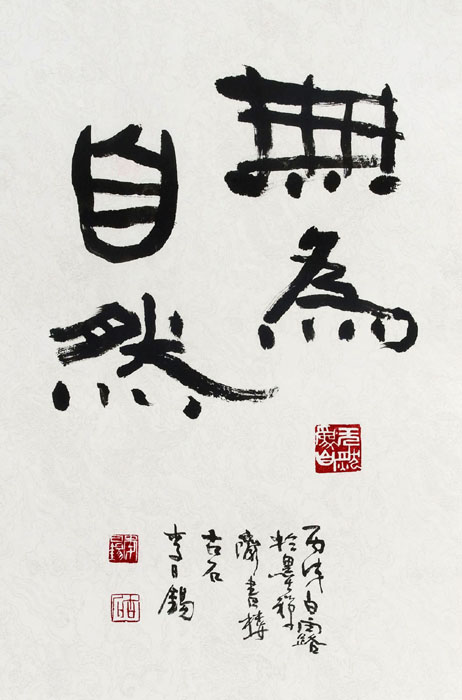 無為
自然
丙戌白露
於墨
齋書樓
古石
李日錫